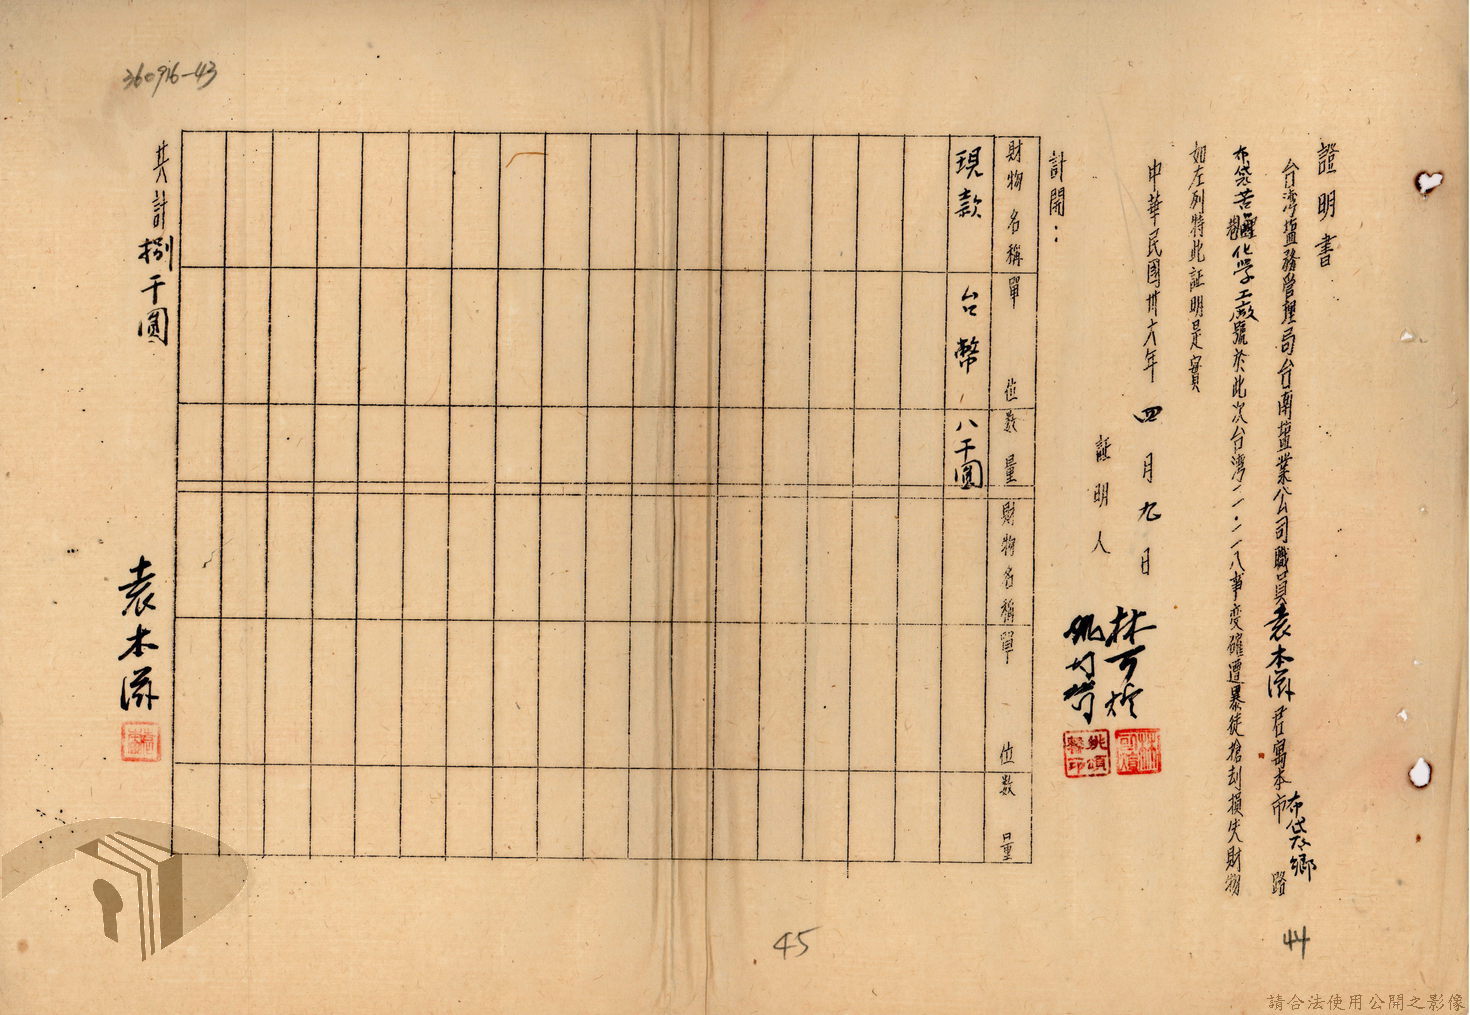 證明書
台湾塩務管理局台南塩業公司職員袁木滋君寓本市布袋鄉路
布袋苦滷化学工廠號於此次台湾二·二八事变確遭暴徒搶刦損失財物
如左列特此証明是實
中華民國卅六年四月九日
証明人
林可燈
計開：
財物名稱 單位 数量 財物名稱 單位 数量
現款 台幣 八千圓
共計捌千圓
袁木滋
360916-43
45
44
請合法使用公開之影像